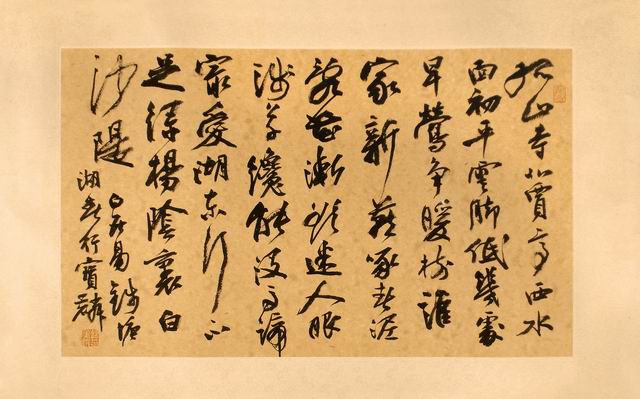 孤山寺北賈亭西水
面初平雲脚低幾處
早鶯爭暖樹誰
家新燕啄春泥
亂花漸欲迷人眼
淺草纔能没馬蹄
冣愛湖東行不
足綠楊陰裏白
沙隄
白居易錢塘
湖春行寶麟